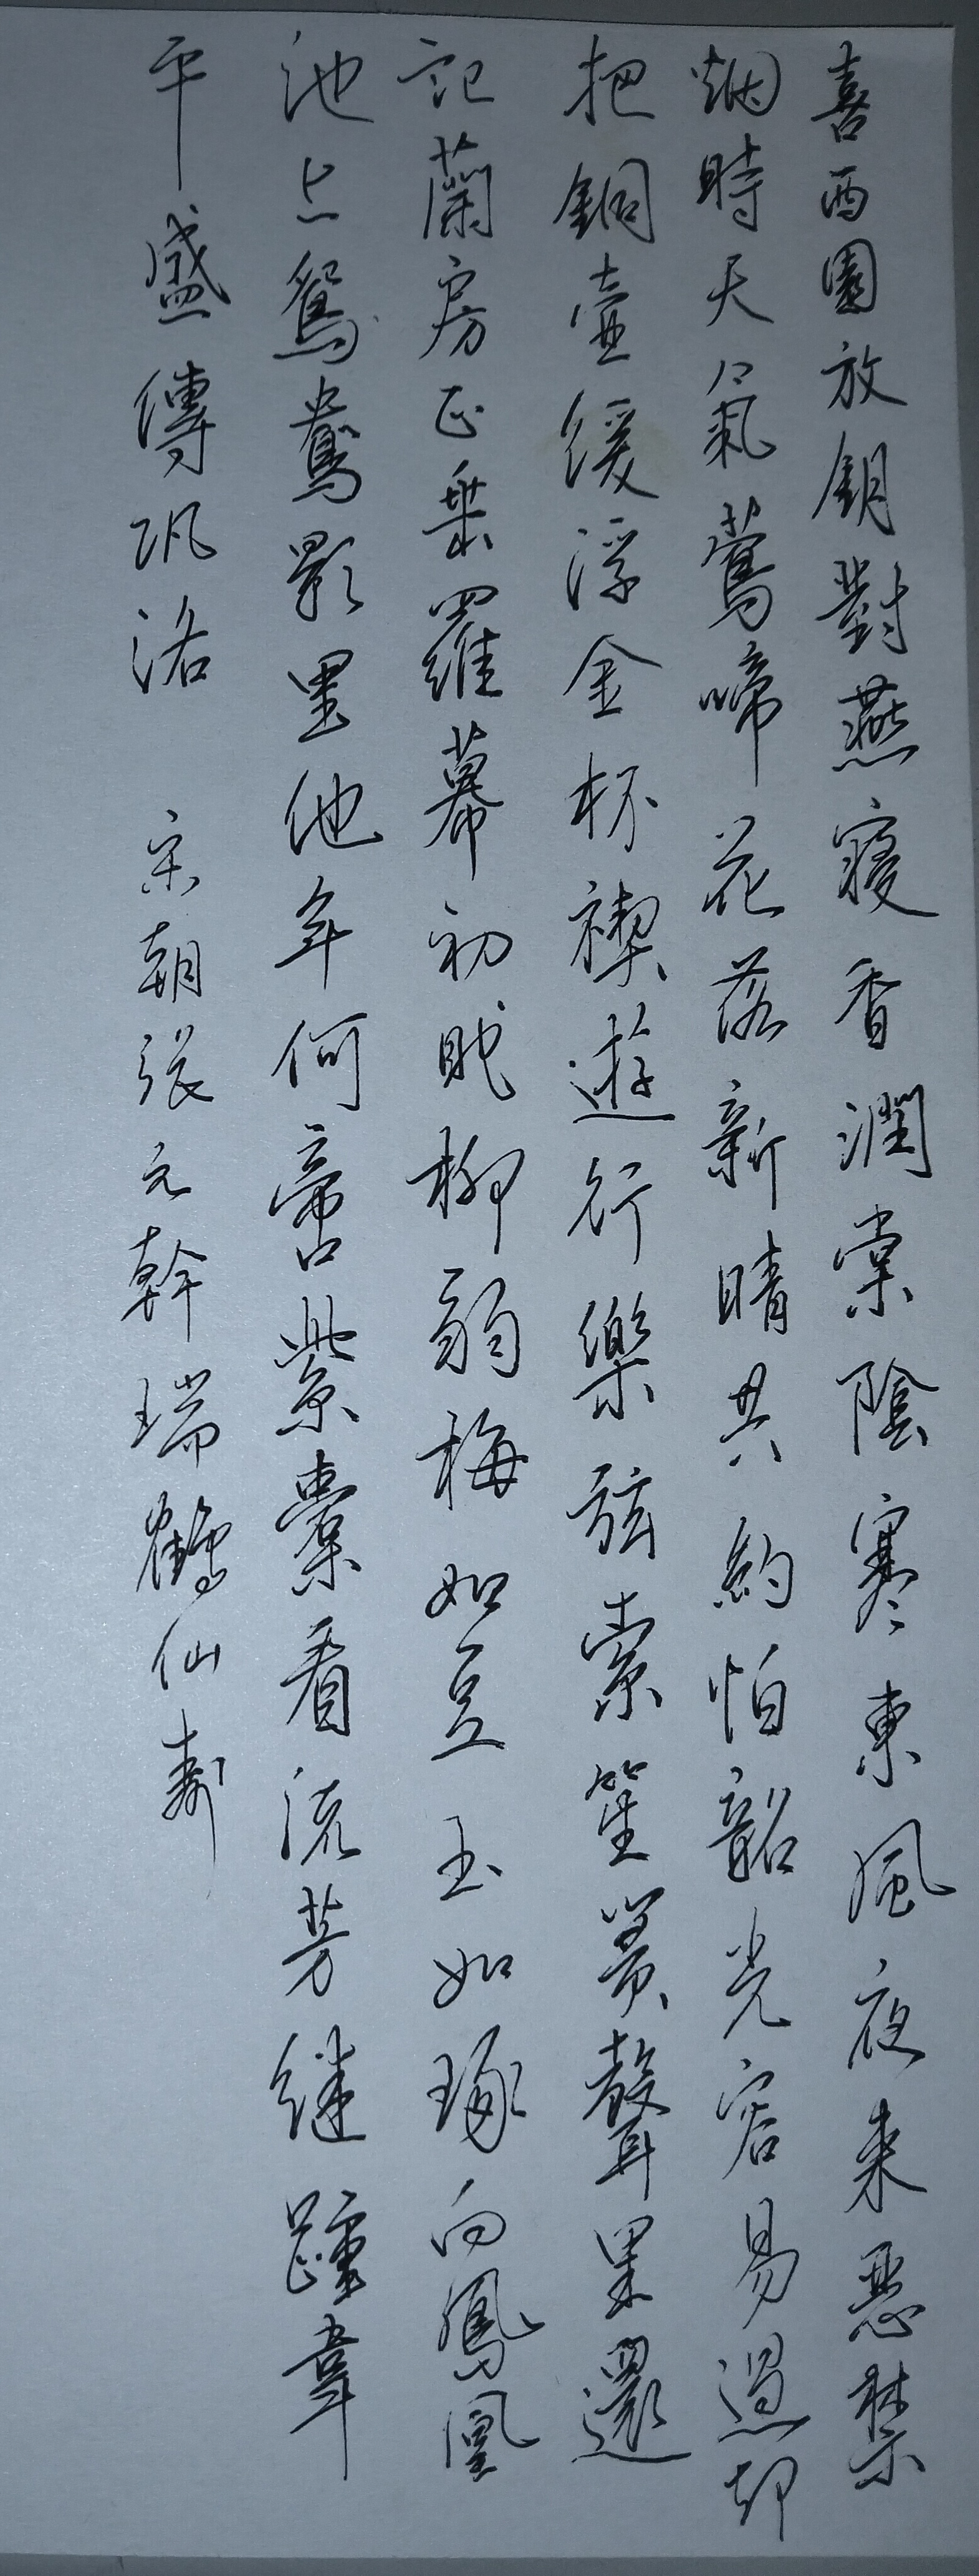 喜西園放鈅對燕寢香潤棠陰寒東風夜來惡禁
烟時天氣鶯啼花落新晴共約怕韶光容易過却
把銅壺緩浮金杯禊遊行樂弦索笙簧聲裏還
記蘭房正垂羅幕初眠柳弱梅如豆玉如琢向鳳凰
池上鴛鴦影里他年何啻紫橐看流芳繼躅韋
平盛傳巩洛 宋朝張元幹瑞鶴仙壽